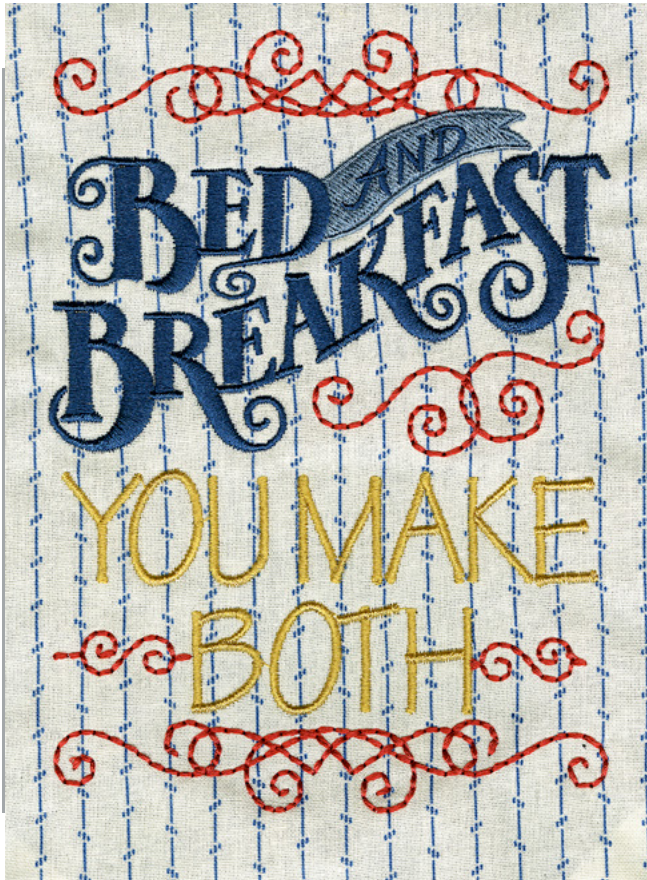 BED AND
BREAKFAST
YOU MAKE
BOTH